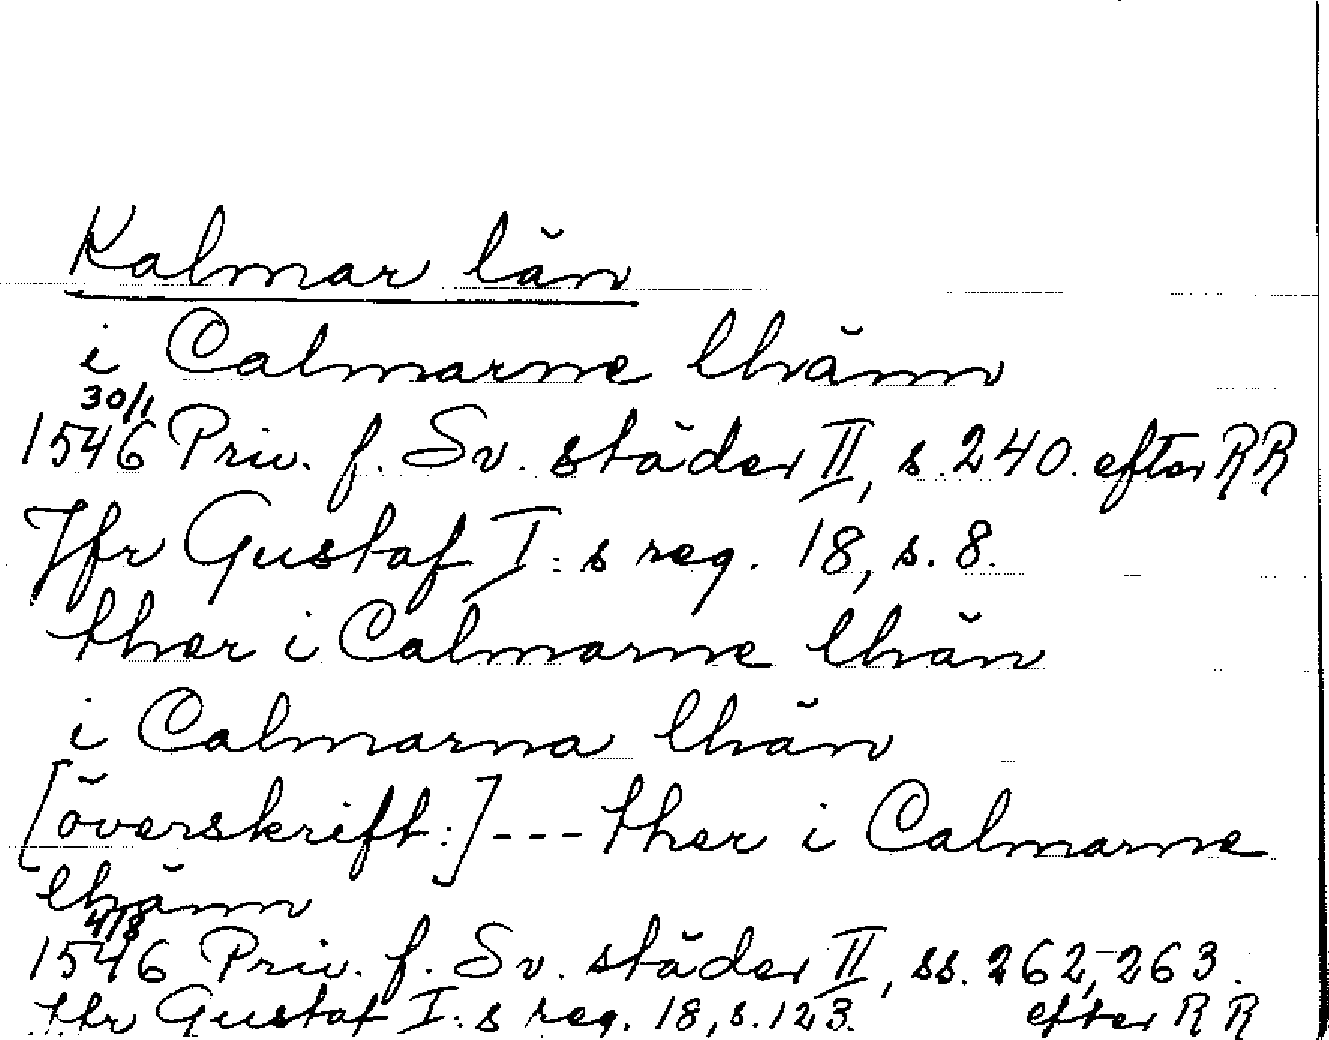 Kalmar län
i Calmarne lhänn
30/1
1546 Priv. f. Sv. städer II, s. 240. efter RR
Jfr Gustaf I:s reg. 18, s. 8.
ther i Calmarne lhän
i Calmarna lhän
[överskrift:] --- ther i Calmarne
lhänn
4/8
1546 Priv. f. Sv. städer II, ss. 262-263.
Jfr Gustaf I:s reg. 18, s. 123. efter RR